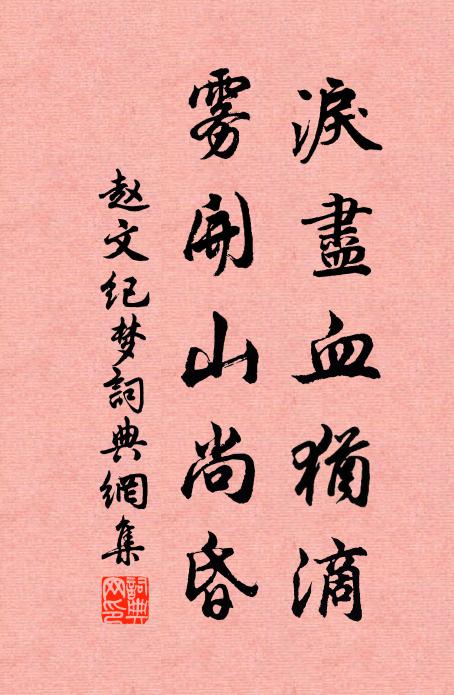 淚盡血猶滴
雾開山尚昏
赵文纪梦詞典網集
詞典网印